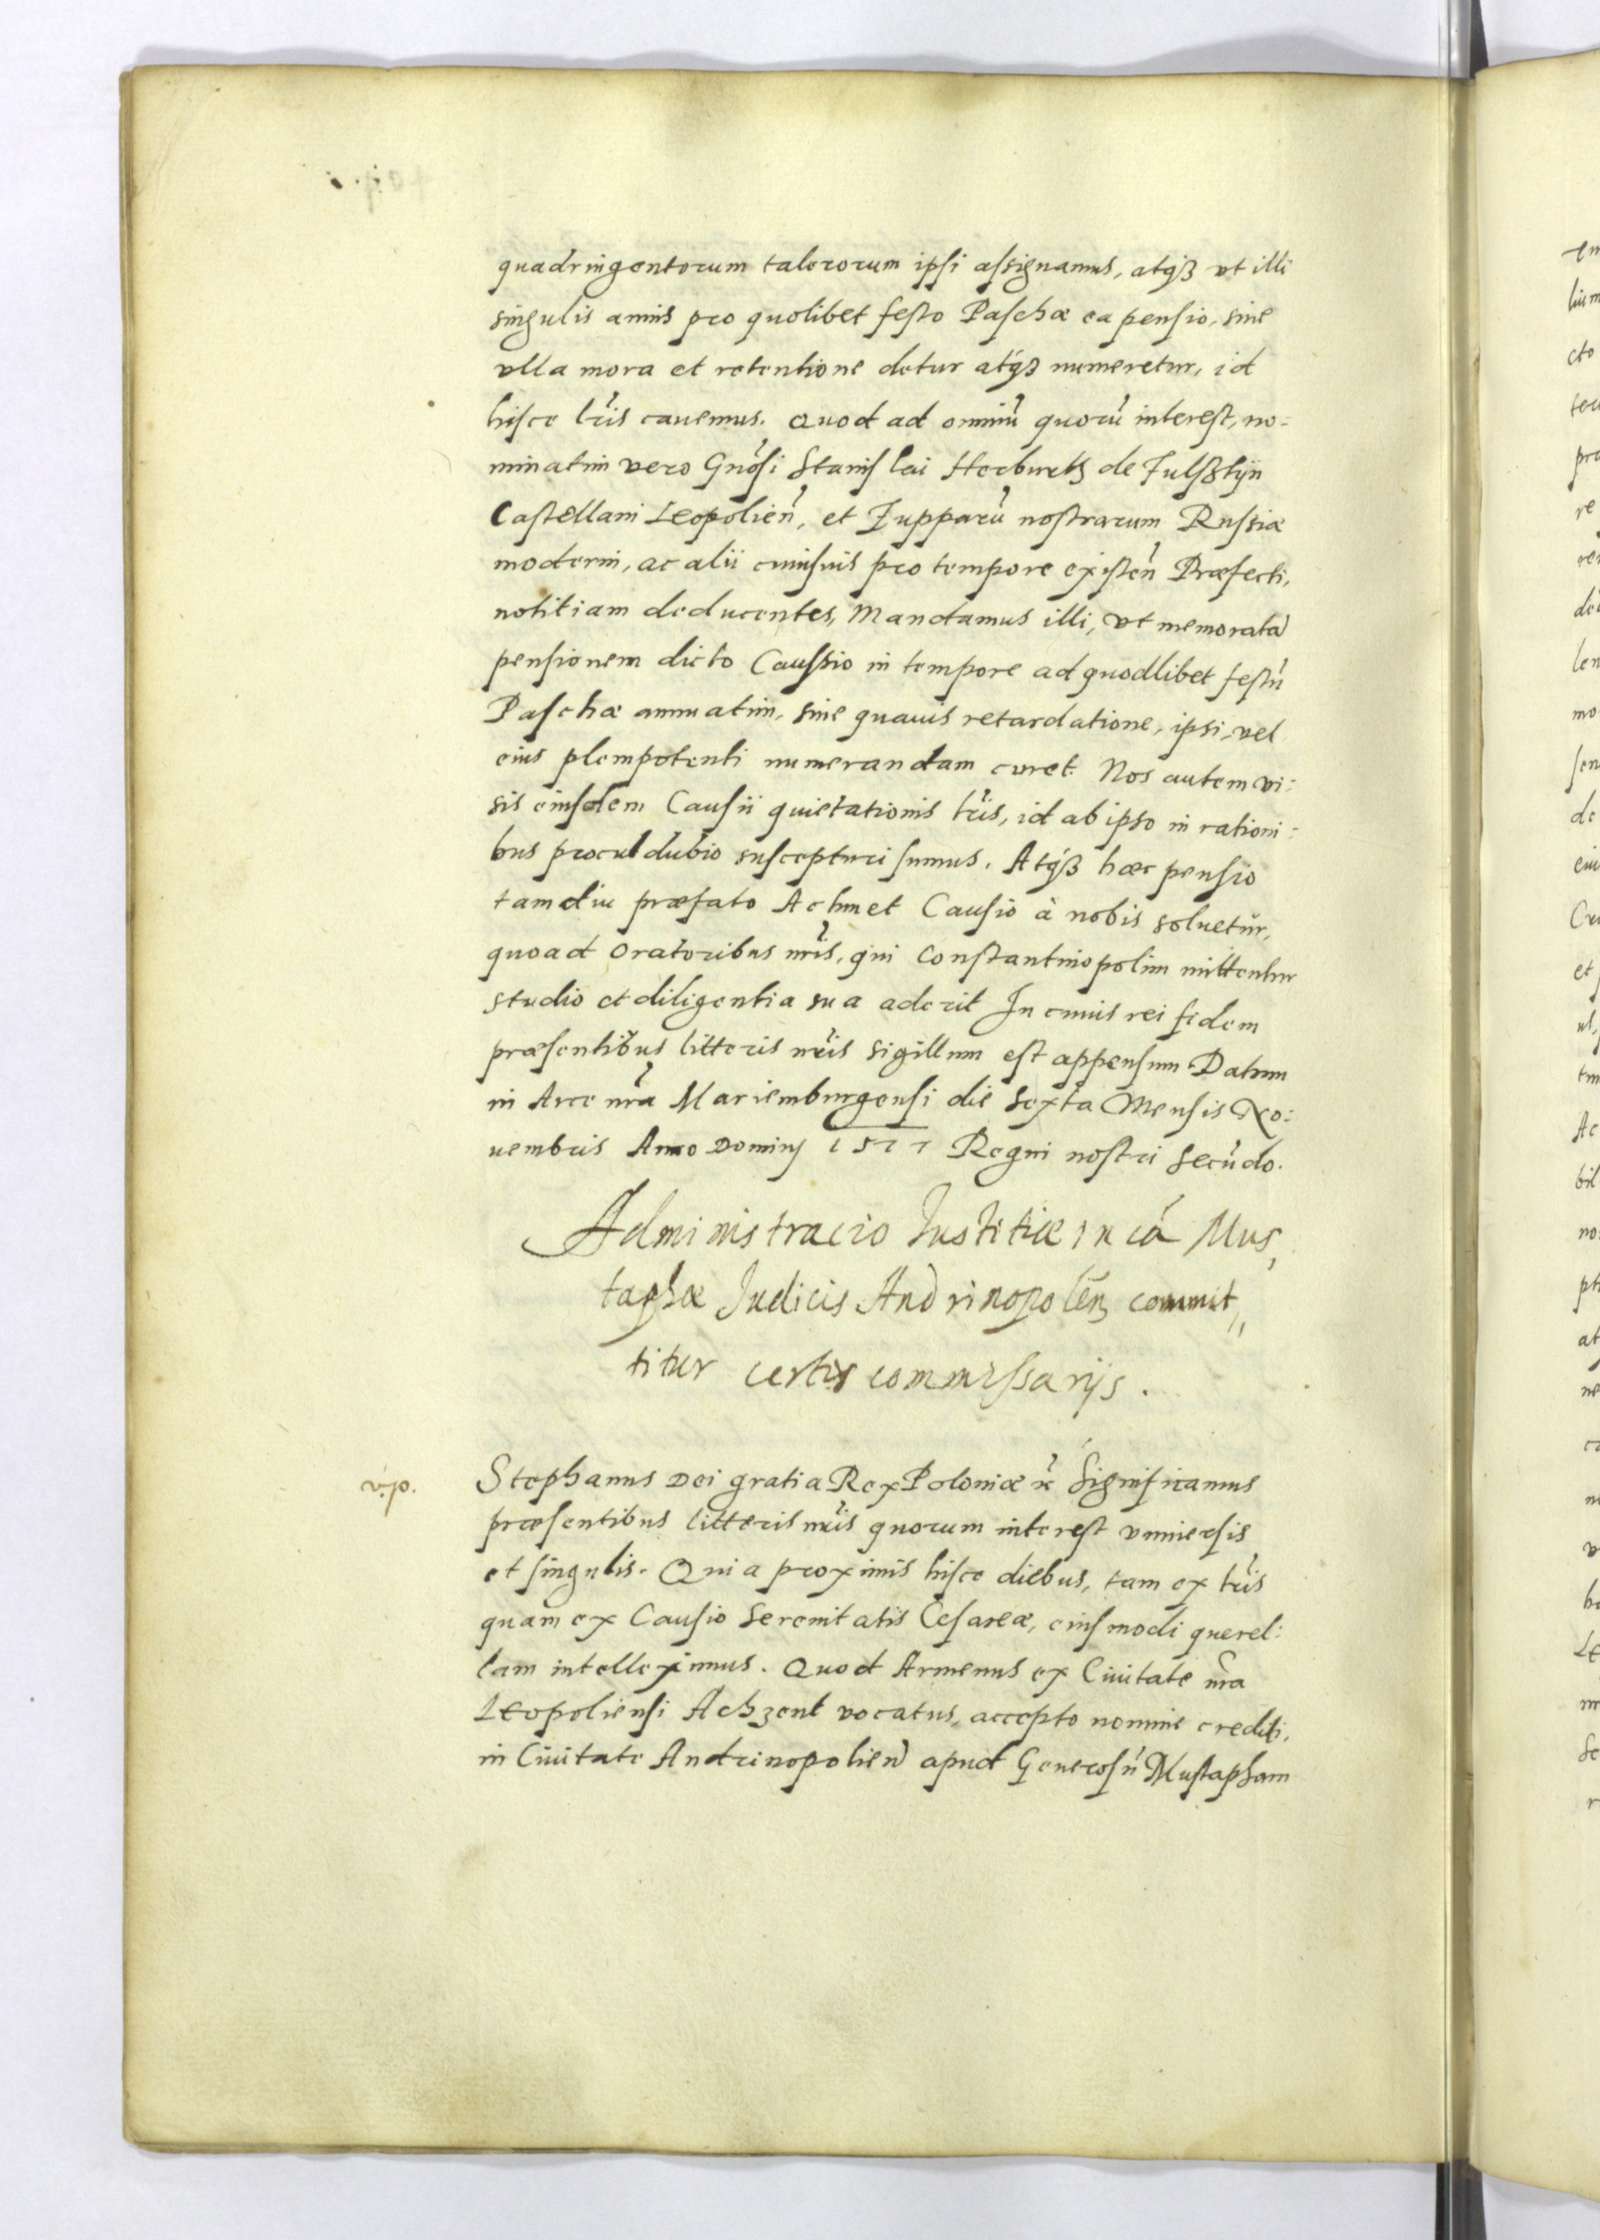 quadringentorum talerorum ipsi assignamus, atqз vt illi
singulis annis pro quolibet festo Paschæ ea pensio, sine
vlla mora et retentione detur atqз numeretur, id
hisce lris cauemus. Quod ad omniũ quorũ interest, no-
minatim vero Gnosi Stanislai Herburth de Fulsztijn
Castellani Leopolien, et Zupparũ nostrarum Russiæ
moderni, ac alii cuiusuis pro tempore existen Præfecti,
notitiam deducentes, Mandamus illi, vt memoratã
pensionem dicto Caussio in tempore ad quodlibet festũ
Paschæ annuatim, sine quauis retardatione, ipsi, vel
eius plenipotenti numerandam curet. Nos autem vi:
sis eiusdem Causii quietationis lris, id ab ipso in rationi:
bus procul dubio suscepturi sumus. Atqз hæc pensio
tamdiu præfato Achmet Causio à nobis soluetur,
quoad Oratoribus nris, qui Constantinopolim mittentur
studio et diligentia sua aderit In cuius rei fidem
præsentibus litteris nris sigillum est appensum. Datum
in Arce nra Mariemburgensi die Sexta Mensis No:
uembris Anno Dominj 1577 Regni nostri Secũdo.
Administracio Iustitiæ in cã Mus,
taphæ Judicis Andrinopolen commit,,
titur certis commissarijs.
v.p.
Stephanus Dei gratia Rex Poloniæ &c Significamus
præsentibus litteris nris quorum interest vniuersis
et singulis. Quia proximis hisce diebus, tam ex lris
quam ex Causio Serenitatis Cesareæ, eiusmodi querel:
lam intelleximus. Quod Armenus ex Ciuitate nra
Leopoliensi Achzent vocatus, accepto nomine crediti,
in Ciuitate Andrinopolien apud Generosũ Mustapham